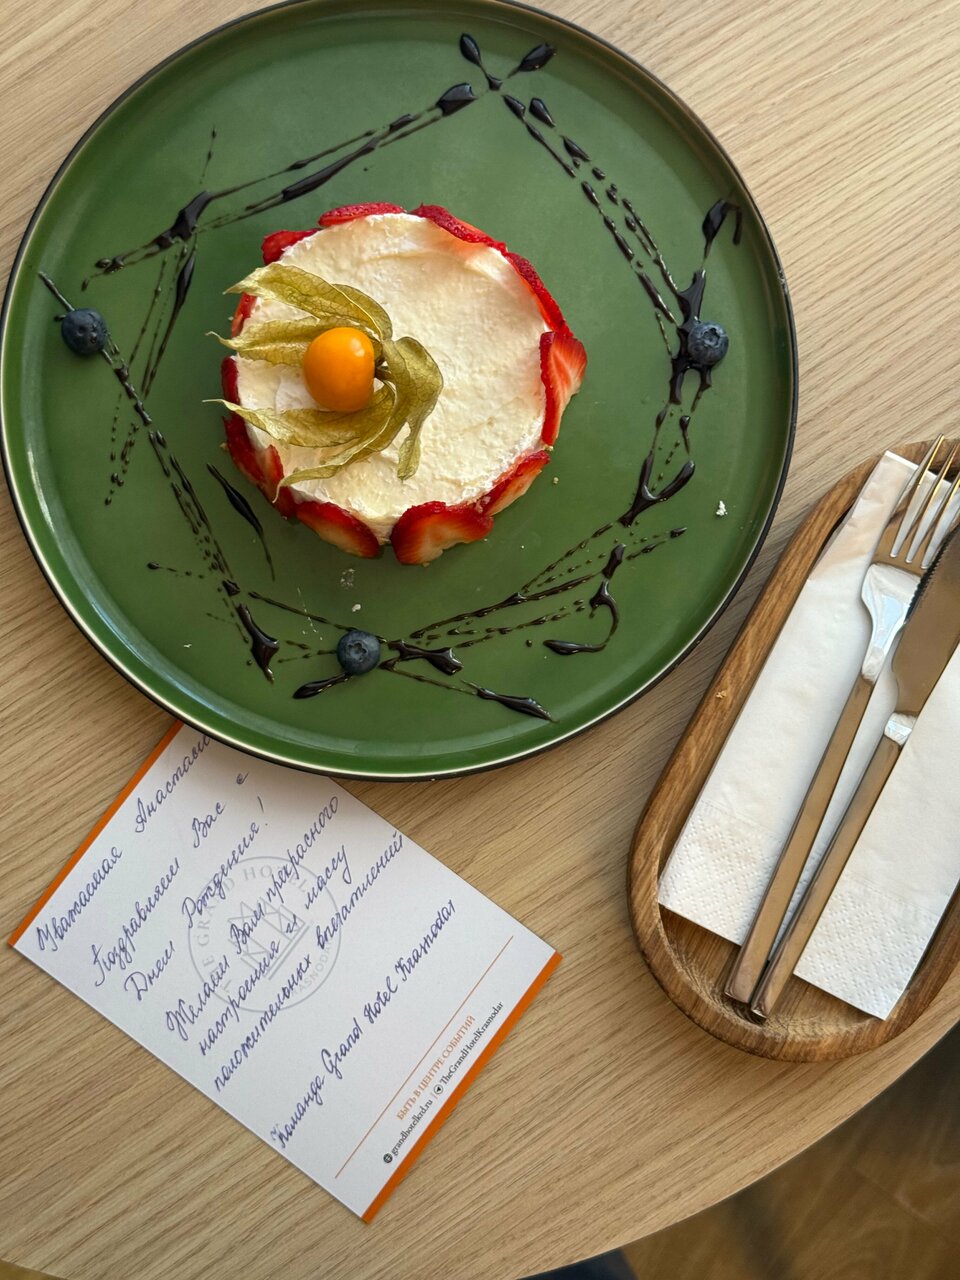 Уважаемая Анастаси
Поздравляем Вас с
Днём Рождения!
Желаем Вам прекрасного
настроения и массу
положительных впечатлений
Команда Grand Hotel Krasnodar
БЫТЬ В ЦЕНТРЕ СОБЫТИЙ
grandhotelkrd.ru | TheGrandHotelKrasnodar
THE GRAND HOTEL